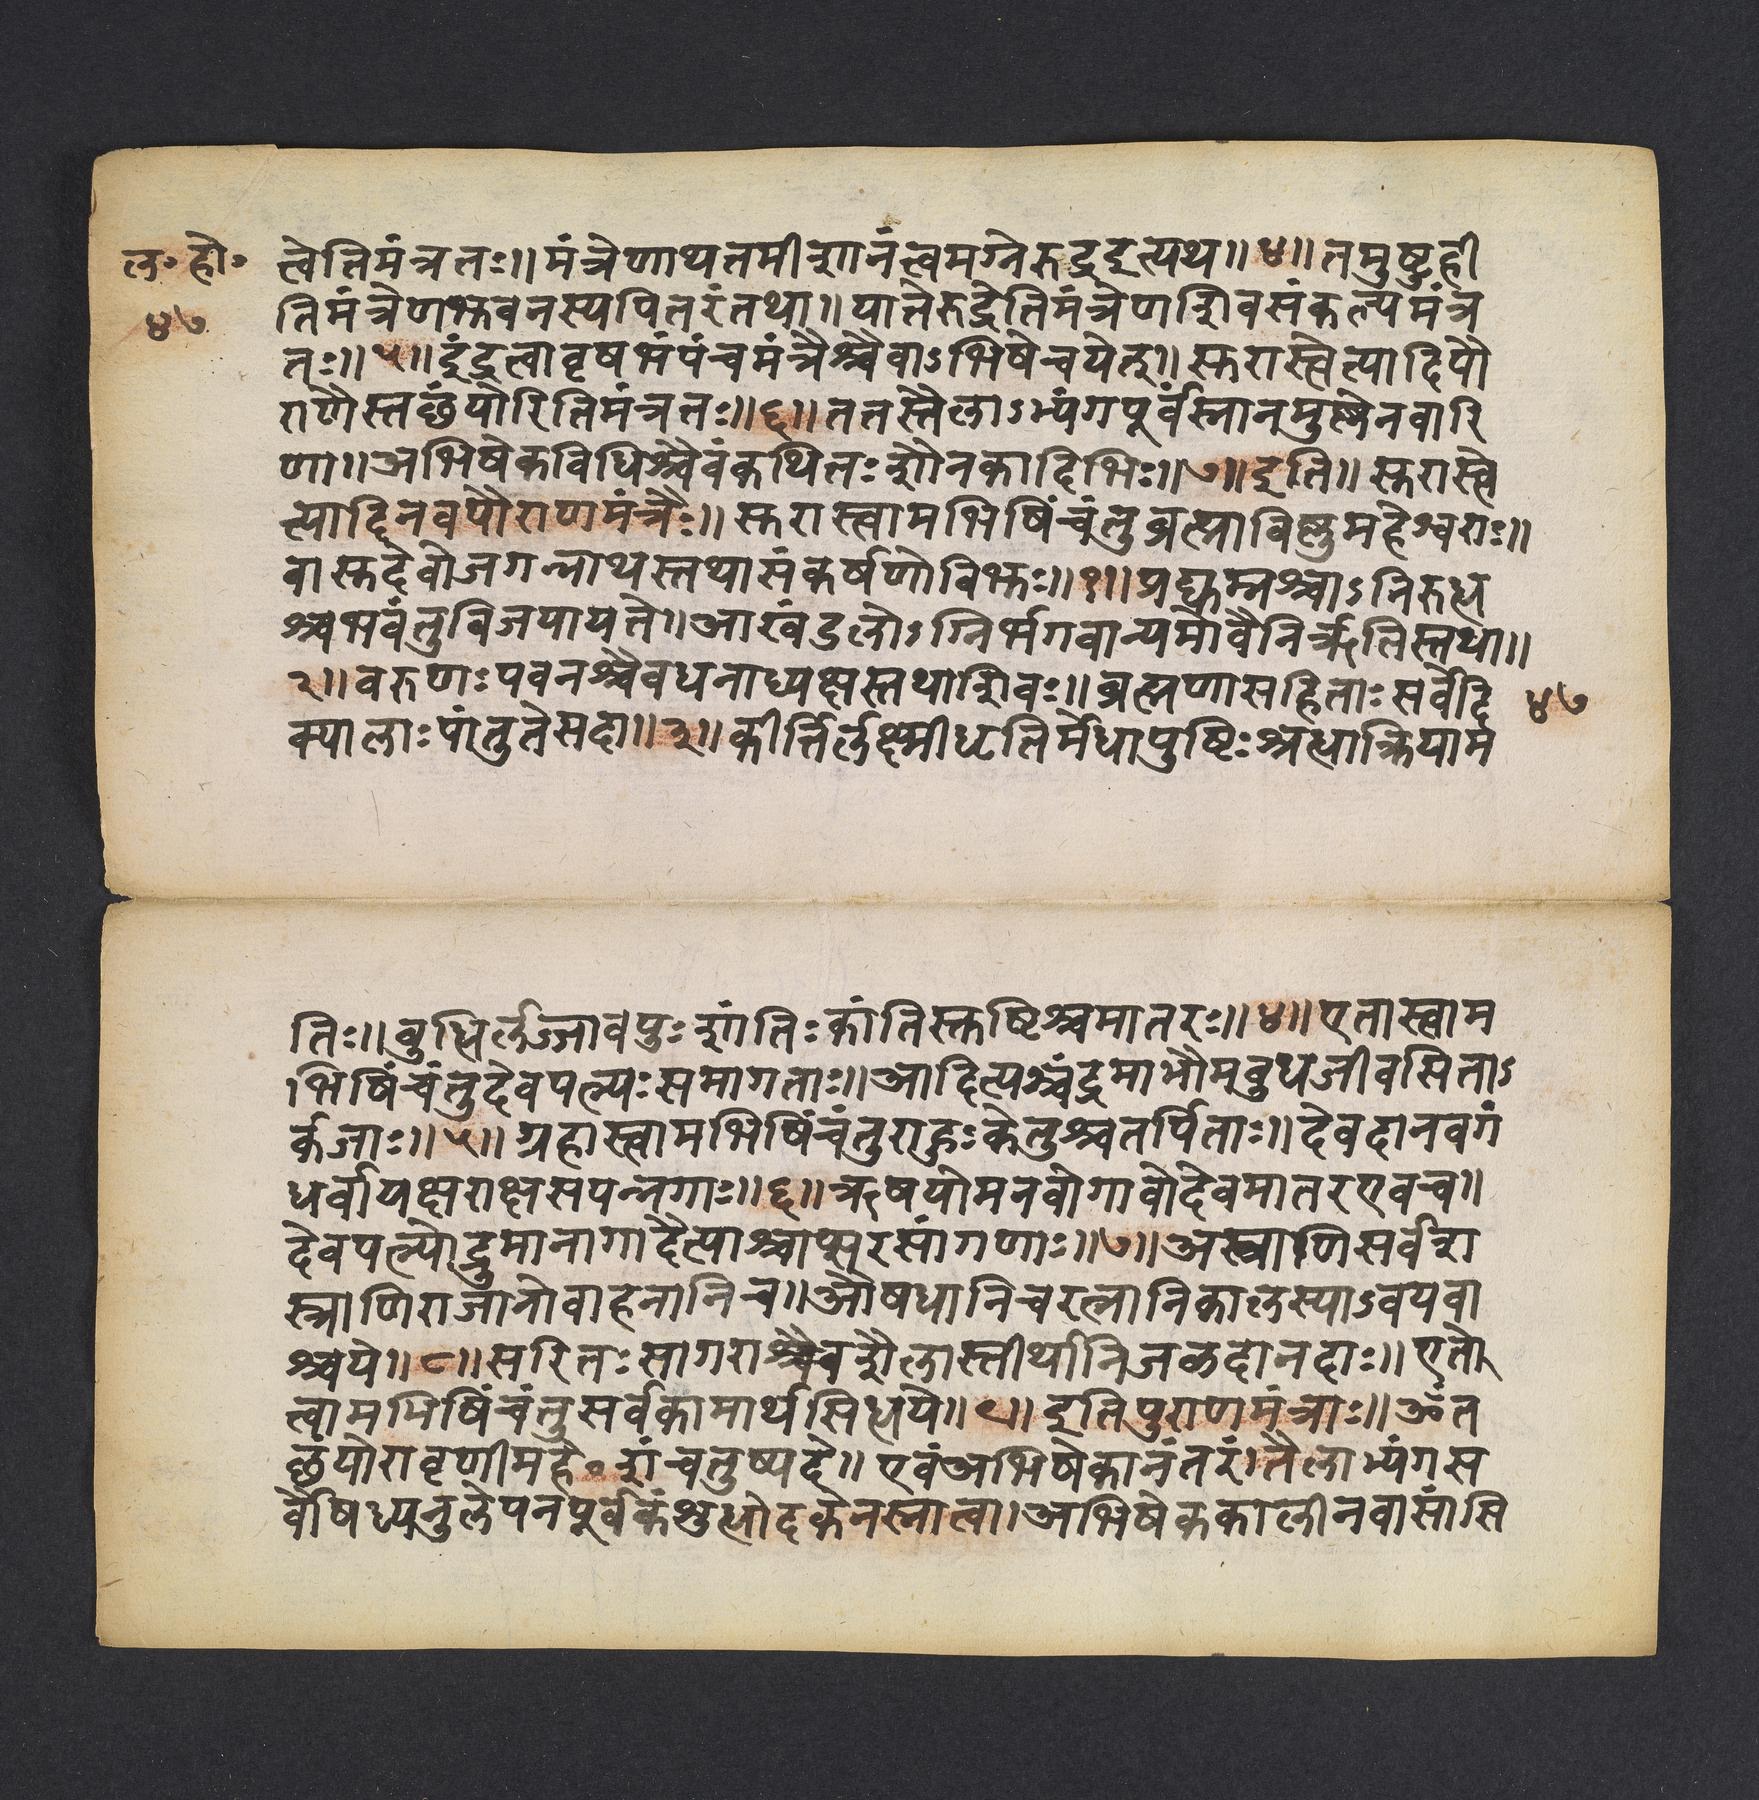 ल॰ हो॰
४७
त्वेतिमंत्रतः॥ मंत्रेणाथतमीशानंत्वमग्नेरुद्रइत्यथ॥ ४॥ तमुष्टुही
तिमंत्रेणभुवनस्यपितरंतथा॥ यातेरुद्रेतिमंत्रेणशिवसंकल्पमंत्र
तः॥ ५॥ इंद्रत्वावृषभंपंचमंत्रैश्चैवाऽभिषेचयेत्॥ सुरास्त्वेत्यादिपौ
राणैस्तछंयोरितिमंत्रतः॥ ६॥ ततस्तैलाऽभ्यंगपूर्वंस्नानमुष्णेनवारि
णा॥ अभिषेकविधिश्चैवंकथितःशौनकादिभिः॥ ७॥ इति॥ सुरास्त्वे
त्यादिनवपौराणमंत्रैः॥ सुरास्त्वामभिषिंचंतुब्रह्माविष्णुमहेश्वराः॥
वासुदेवोजगन्नाथस्तथासंकर्षणोविभुः॥ १॥ प्रद्युम्नश्चाऽनिरुद्ध
श्चभवंतुविजयायते॥ आखंडलोऽग्निर्भगवान्यमोवैनिर्ऋतिस्तथा॥
२॥ वरुणःपवनश्चैवधनाध्यक्षस्तथाशिवः॥ ब्रह्मणासहिताःसर्वेदि
क्पालाःपांतुतेसदा॥ ३॥ कीर्त्तिर्लक्ष्मीधृतिर्मेधापुष्टिःश्रद्धाक्रियाम
४७
तिः॥ बुद्धिर्लज्जावपुःशांतिःकांतिस्तुष्टिश्चमातरः॥ ४॥ एतास्त्वाम
भिषिंचंतुदेवपत्न्यःसमागताः॥ आदित्यश्चंद्रमाभौमबुधजीवसिताऽ
र्कजाः॥ ५॥ ग्रहास्त्वामभिषिंचंतुराहुःकेतुश्चतर्पिताः॥ देवदानवगं
धर्वायक्षराक्षसपन्नगाः॥ ६॥ ऋषयोमनवोगावोदेवमातरएवच॥
देवपत्न्योद्रुमानागादैत्याश्चाप्सरसांगणाः॥ ७॥ अस्त्राणिसर्वशा
स्त्राणिराजानोवाहनानिच॥ औषधानिचरत्नानिकालस्याऽवयवा
श्चये॥ ८॥ सरितःसागराश्चैवशैलास्तीर्थानिजलदानदाः॥ एते
त्वामभिषिंचंतुसर्वकामार्थसिद्धये॥ ९॥ इतिपुराणमंत्राः॥ ॐत
छंयोरावृणीमहे॰ शंचतुष्पदे॥ एवंअभिषेकानंतरं। तैलाभ्यंगस
र्वौषध्यनुलेपनपूर्वकंशुद्धोदकेनस्नात्वा। अभिषेककालीनवासांसि